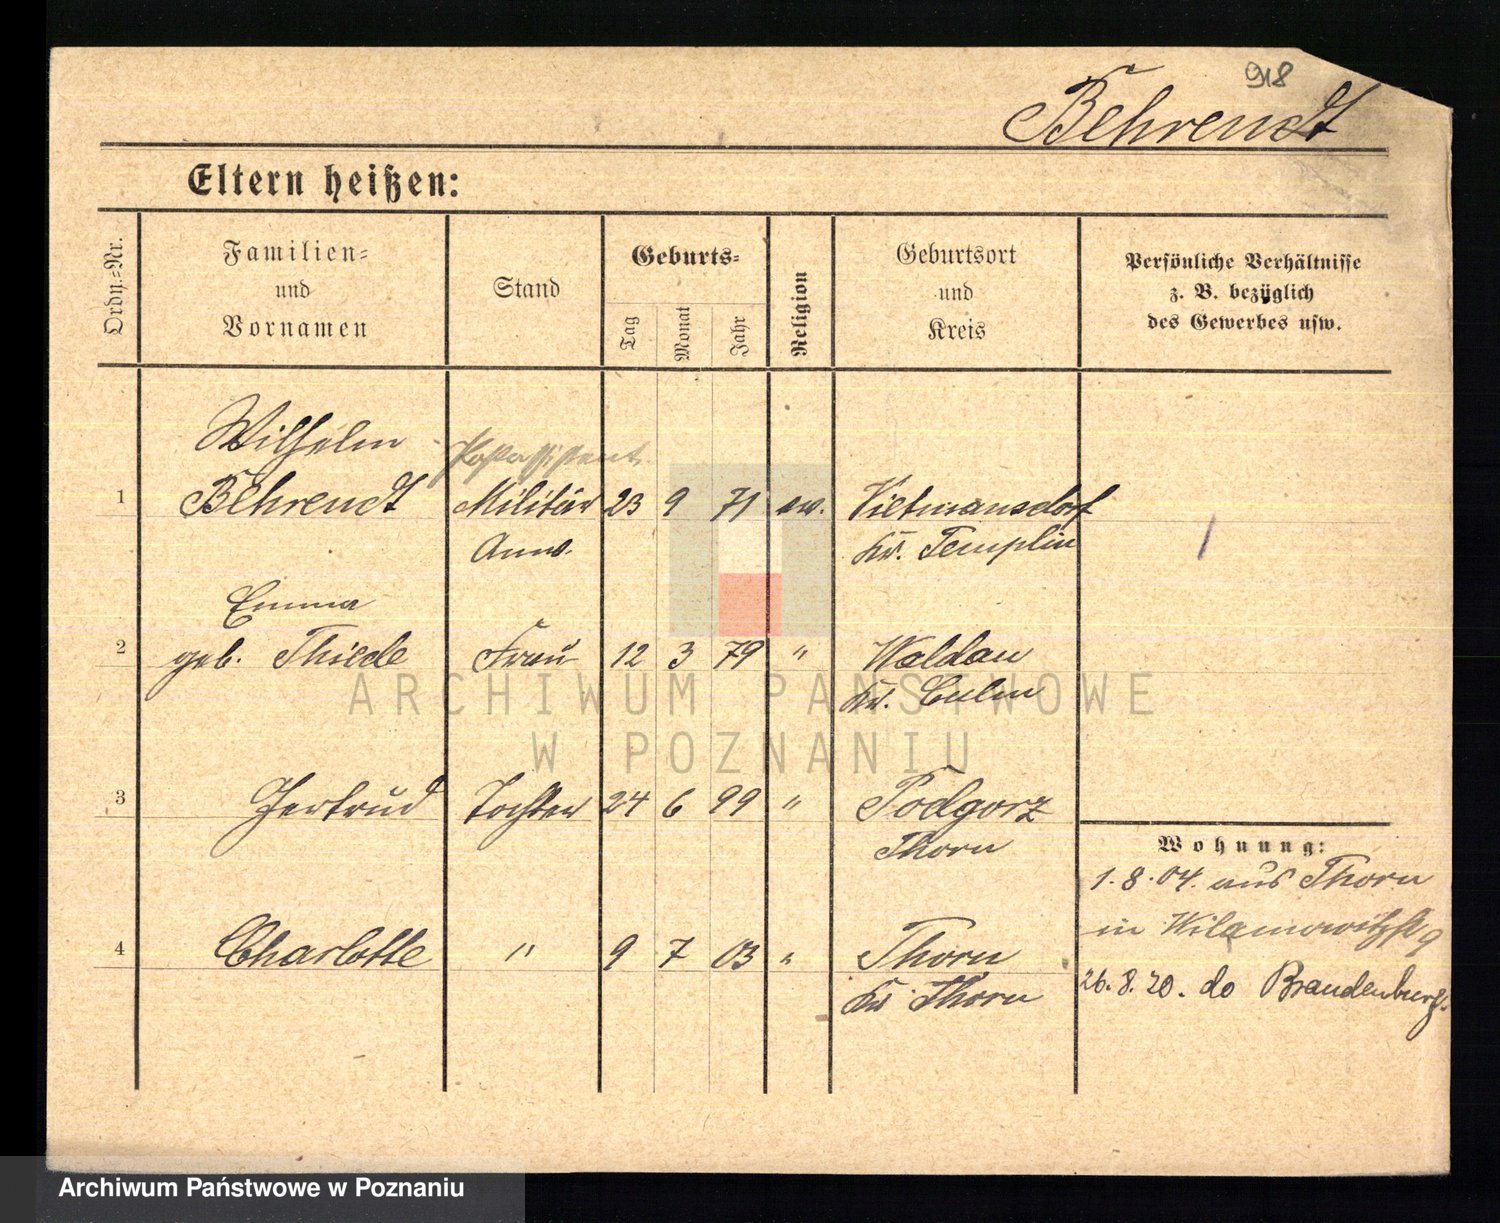 918
Behrendt
Eltern heißen:
Ordn.=Nr.
Familien=
und
Vornamen
Stand
Geburts=
Tag
Monat
Jahr
Religion
Geburtsort
und
Kreis
Persönliche Verhältnisse
z. B. bezüglich
des Gewerbes usw.
Wilhelm
Postassistent
1 Behrendt Militär 23 9 71 ev. Vietmannsdorf
Anw. Kr. Templin
Emma
2 geb. Thiede Frau 12 3 79 " Waldau
Kr. Culm
3 Gertrud Tochter 24 6 99 " Podgorz
Thorn
4 Charlotte " 9 7 03 " Thorn
Kr Thorn
Wohnung:
1.8.04. aus Thorn
in Wilamowitzstr 9
26.8.20. do Brandenburg.
ARCHIWUM PAŃSTWOWE
W POZNANIU
Archiwum Państwowe w Poznaniu